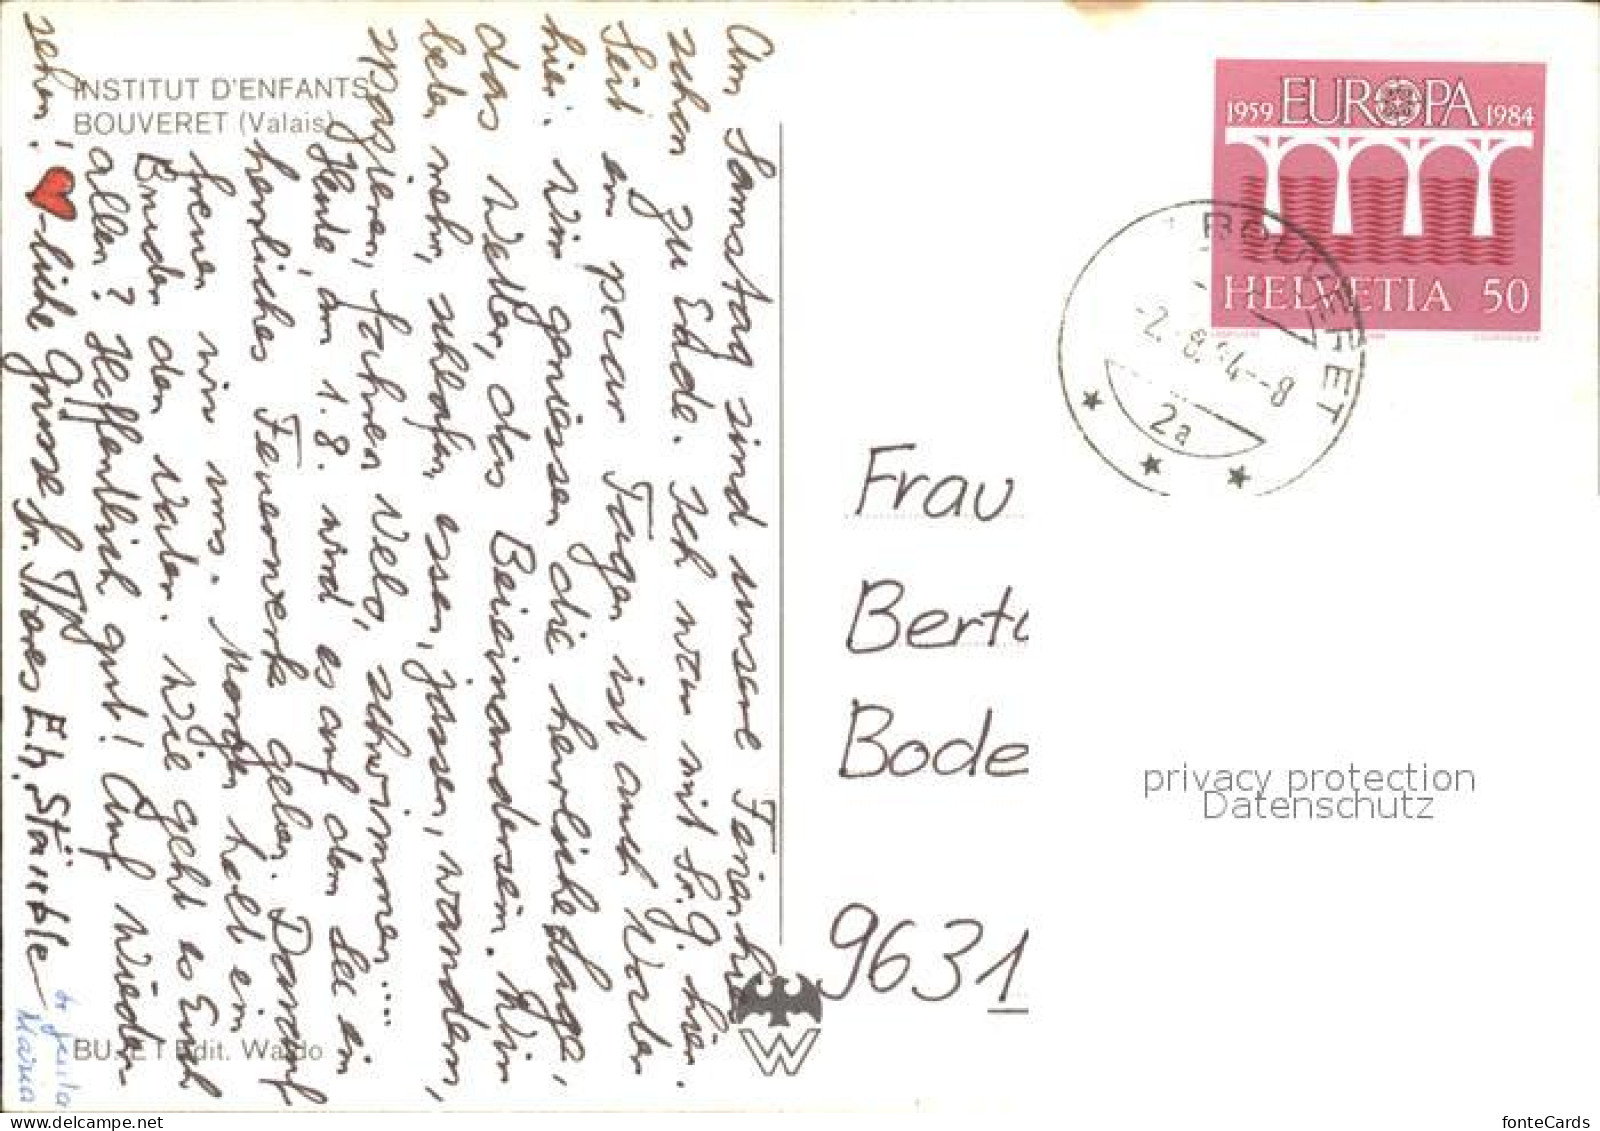 INSTITUT D'ENFANTS
BOUVERET (Valais)
Am Samstag sind unsere Ferien hier
schon zu Ende. Ich war mit Sr. G. hier.
Seit ein paar Tagen ist auch Walter
hier. Wir geniessen die herrliche Lage,
das Wetter, das Beieinandersein. Wir
beten mehr, schlafen, essen, jassen, wandern,
spazieren, fahren Velo, schwimmen....
Heute, am 1.8. wird es auf dem See ein
herrliches Feuerwerk geben. Darauf
freuen wir uns. Morgen holt ein
Bruder den Vater. Wie geht es Euch
allen? Hoffentlich gut! Auf Wieder-
sehen! ♥-liche Grüsse Sr. Thores Eh. Stäuble
Maria
BUVET Edit. Waldo
W
1959 EUROPA 1984
HELVETIA 50
BOUVERET
-2.-8.84--8
2a
Frau
Bert
Bode
9631
privacy protection
Datenschutz
fonteCards